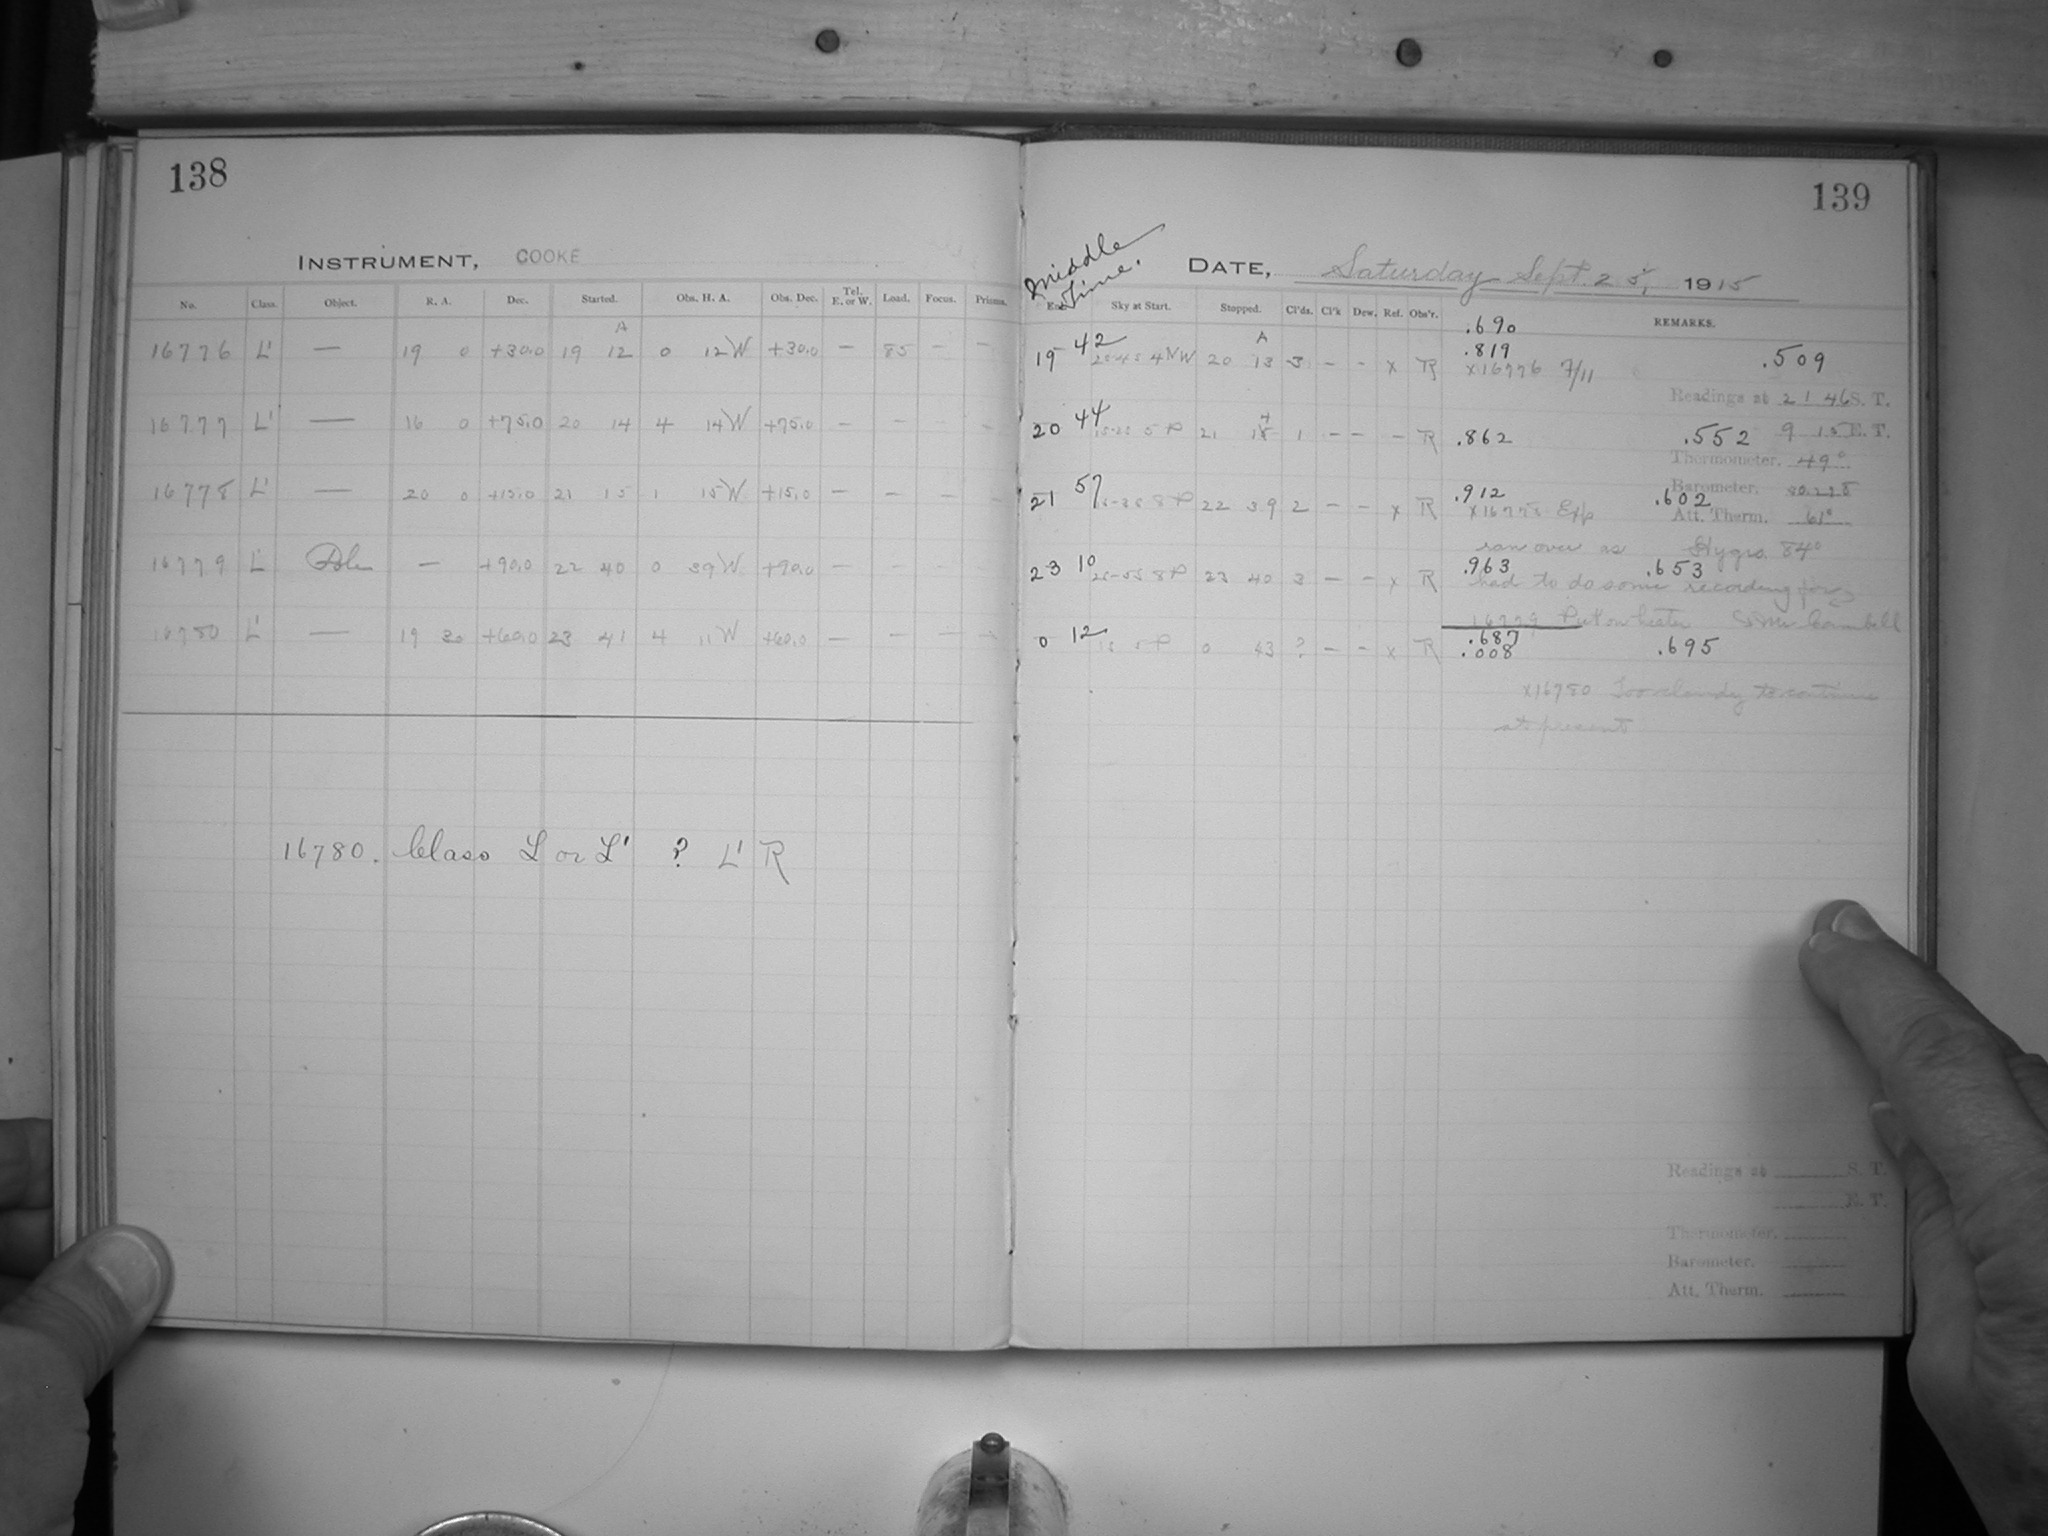 138
INSTRUMENT, COOKE
No. Class. Object. R. A. Dec. Started. Obs. H. A. Obs. Dec. Tel. E. or W. Load. Focus. Prisms.
A
16776 L' — 19 0 +30.0 19 12 0 12W +30.0 — 85 — —
16777 L' — 16 0 +75.0 20 14 4 14W +75.0 — — — —
16778 L' — 20 0 +15.0 21 15 1 15W +15.0 — — — —
16779 L' Pole — +90.0 22 40 0 39W +90.0 — — — —
16780 L' — 19 30 +60.0 23 41 4 11W +60.0 — — — —
16780. Class L or L' ? L' R
139
Middle Time.
DATE, Saturday Sept. 25, 1915
Sky at Start. Stopped. Cl'ds. Cl'k Dew. Ref. Obs'r. REMARKS.
.690
A
19 42 20 13 3 — — x R .819 .509
x16776 7/11
Readings at 21 46 S. T.
20 44 21 1 — — — R .862 .552 9 15 E. T.
Thermometer. 49°
Barometer.
21 57 22 39 2 — — x R .912 .602
x16778 Exp Att. Therm. 61°
ran over as Hygro. 84°
23 10 23 40 3 — — x R .963 .653
had to do some recording for
16779 Put on heater Mr Campbell
0 12 0 43 ? — — x R .687
.008 .695
x16780 Too cloudy to continue
at present
Readings at S. T.
E. T.
Thermometer.
Barometer.
Att. Therm.